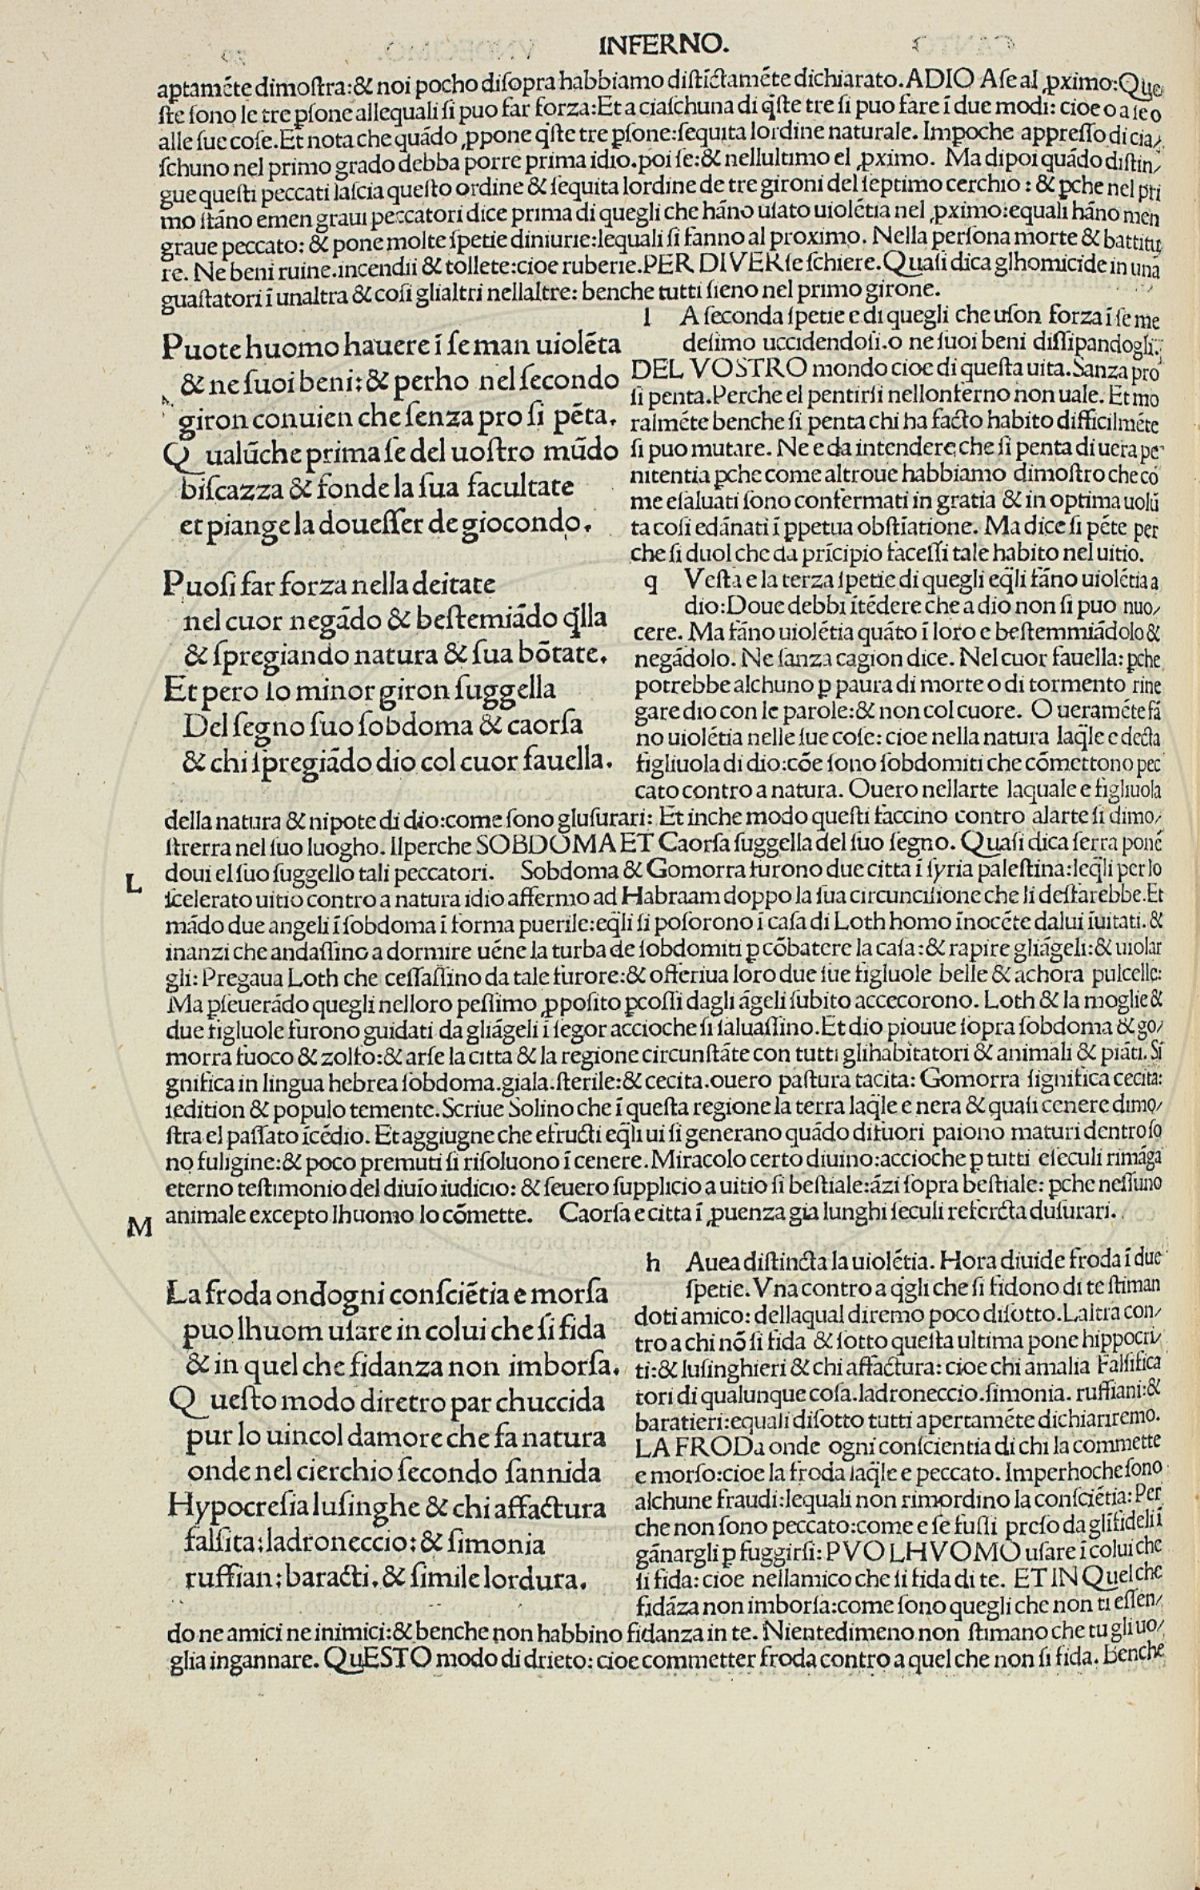 INFERNO.
aptamēte dimoſtra:& noi pocho diſopra habbiamo diſtīctamēte dichiarato. ADIO Aſe al ꝓximo: Que
ſte ſono le tre ꝑſone allequali ſi puo far forza: Et a ciaſchuna di q̄ſte tre ſi puo fare ī due modi: cioe o a ſe o
alle ſue coſe. Et nota che quādo ꝓpone q̄ſte tre ꝑſone: ſequita lordine naturale. Impoche appreſſo di cia/
ſchuno nel primo grado debba porre prima idio. poi ſe:& nellultimo el ꝓximo. Ma dipoi quādo diſtin/
gue queſti peccati laſcia queſto ordine & ſequita lordine de tre gironi del ſeptimo cerchio: & ꝑche nel pri
mo ſtāno emen graui peccatori dice prima di quegli che hāno uſato uiolētia nel ꝓximo: equali hāno men
graue peccato: & pone molte ſpetie diniurie: lequali ſi fanno al proximo. Nella perſona morte & battitu
re. Ne beni ruine. incendii & tollete: cioe ruberie. PER DIVERſe ſchiere. Quaſi dica glhomicide in una
guaſtatori ī unaltra & coſi glialtri nellaltre: benche tutti ſieno nel primo girone.
Puote huomo hauere ī ſe man uiolēta
& ne ſuoi beni: & perho nel ſecondo
giron conuien che ſenza pro ſi pēta.
Qualūche prima ſe del uoſtro mūdo
biſcazza & fonde la ſua facultate
et piange la doueſſer de giocondo.
Puoſi far forza nella deitate
nel cuor negādo & beſtemiādo q̄lla
& ſpregiando natura & ſua bōtate.
Et pero lo minor giron ſuggella
Del ſegno ſuo ſobdoma & caorſa
& chi ſpregiādo dio col cuor fauella.
l A ſeconda ſpetie e di quegli che uſon forza ī ſe me
deſimo uccidendoſi. o ne ſuoi beni diſſipandogli.
DEL VOSTRO mondo cioe di queſta uita. Sanza pro
ſi penta. Perche el pentirſi nellonferno non uale. Et mo
ralmēte benche ſi penta chi ha facto habito difficilmēte
ſi puo mutare. Ne e da intendere che ſi penta di uera pe
nitentia ꝑche come altroue habbiamo dimoſtro che co
me eſaluati ſono confermati in gratia & in optima uolū
ta coſi edānati ī ꝑpetua obſtīatione. Ma dice ſi pēte per
che ſi duol che da prīcipio faceſſi tale habito nel uitio.
q Veſta e la terza ſpetie di quegli eq̄li fāno uiolētia a
dio: Doue debbi ītēdere che a dio non ſi puo nuo/
cere. Ma fāno uiolētia quāto ī loro e beſtemmiādolo &
negādolo. Ne ſanza cagion dice. Nel cuor fauella: ꝑche
potrebbe alchuno ꝑ paura di morte o di tormento rine
gare dio con le parole: & non col cuore. O ueramēte fā
no uiolētia nelle ſue coſe: cioe nella natura laq̄le e decta
figliuola di dio: cōe ſono ſobdomiti che cōmettono pec
cato contro a natura. Ouero nellarte laquale e figliuola
della natura & nipote di dio: come ſono gluſurari: Et inche modo queſti faccino contro alarte ſi dimo/
ſtrerra nel ſuo luogho. Ilperche SOBDOMA ET Caorſa ſuggella del ſuo ſegno. Quaſi dica ſerra ponē
doui el ſuo ſuggello tali peccatori. Sobdoma & Gomorra furono due citta ī ſyria paleſtina: leq̄li per lo
L
ſcelerato uitio contro a natura idio affermo ad Habraam doppo la ſua circunciſione che li deſfarebbe. Et
mādo due angeli ī ſobdoma ī forma puerile: eq̄li ſi poſorono ī caſa di Loth homo īnocēte dalui īuitati. &
inanzi che andaſſino a dormire uēne la turba de ſobdomiti ꝑ cōbatere la caſa: & rapire gliāgeli: & uiolar
gli: Pregaua Loth che ceſſaſſino da tale furore: & offeriua loro due ſue figluole belle & achora pulcelle:
Ma ꝑſeuerādo quegli nelloro peſſimo ꝓpoſito ꝑcoſſi dagli āgeli ſubito accecorono. Loth & la moglie &
due figluole furono guidati da gliāgeli ī ſegor accioche ſi ſaluaſſino. Et dio piouue ſopra ſobdoma & go/
morra fuoco & zolfo: & arſe la citta & la regione circunſtāte con tutti glihabitatori & animali & piāti. Si
gnifica in lingua hebrea ſobdoma. giala. ſterile: & cecita. ouero paſtura tacita: Gomorra ſignifica cecita:
ſedition & populo temente. Scriue Solino che ī queſta regione la terra laq̄le e nera & quaſi cenere dimo/
ſtra el paſſato īcēdio. Et aggiugne che efructi eq̄li ui ſi generano quādo difuori paiono maturi dentro ſo
no fuligine: & poco premuti ſi riſoluono ī cenere. Miracolo certo diuino: accioche ꝑ tutti eſeculi rimāga
eterno teſtimonio del diuīo iudicio: & ſeuero ſupplicio a uitio ſi beſtiale: āzi ſopra beſtiale: ꝑche neſſuno
M
animale excepto lhuomo lo cōmette. Caorſa e citta ī ꝓuenza gia lunghi ſeculi refercta duſurari.
La froda ondogni conſciētia e morſa
puo lhuom uſare in colui che ſi fida
& in quel che fidanza non imborſa.
Queſto modo diretro par chuccida
pur lo uincol damore che fa natura
onde nel cierchio ſecondo ſannida
Hypocreſia luſinghe & chi affactura
falſita: ladroneccio: & ſimonia
ruffian: baracti. & ſimile lordura.
h Auea diſtincta la uiolētia. Hora diuide froda ī due
ſpetie. Vna contro a q̄gli che ſi fidono di te ſtiman
doti amico: dellaqual diremo poco diſotto. Laltra con/
tro a chi nō ſi fida & ſotto queſta ultima pone hippocri/
ti: & luſinghieri & chi affactura: cioe chi amalia Falſifica
tori di qualunque coſa. ladroneccio. ſimonia. ruffiani: &
baratieri: equali diſotto tutti apertamēte dichiariremo.
LA FRODa onde ogni conſcientia di chi la commette
e morſo: cioe la froda laq̄le e peccato. Imperhoche ſono
alchune fraudi: lequali non rimordino la conſciētia: Per
che non ſono peccato: come e ſe fuſſi preſo da glīfideli ī
gānargli ꝑ fuggirſi: PVO LHVOMO uſare ī colui che
ſi fida: cioe nellamico che ſi fida di te. ET IN Quel che
fidāza non imborſa: come ſono quegli che non ti eſſen/
do ne amici ne inimici: & benche non habbino fidanza in te. Nientedimeno non ſtimano che tu gli uo/
glia ingannare. QuESTO modo di drieto: cioe commetter froda contro a quel che non ſi fida. Benche